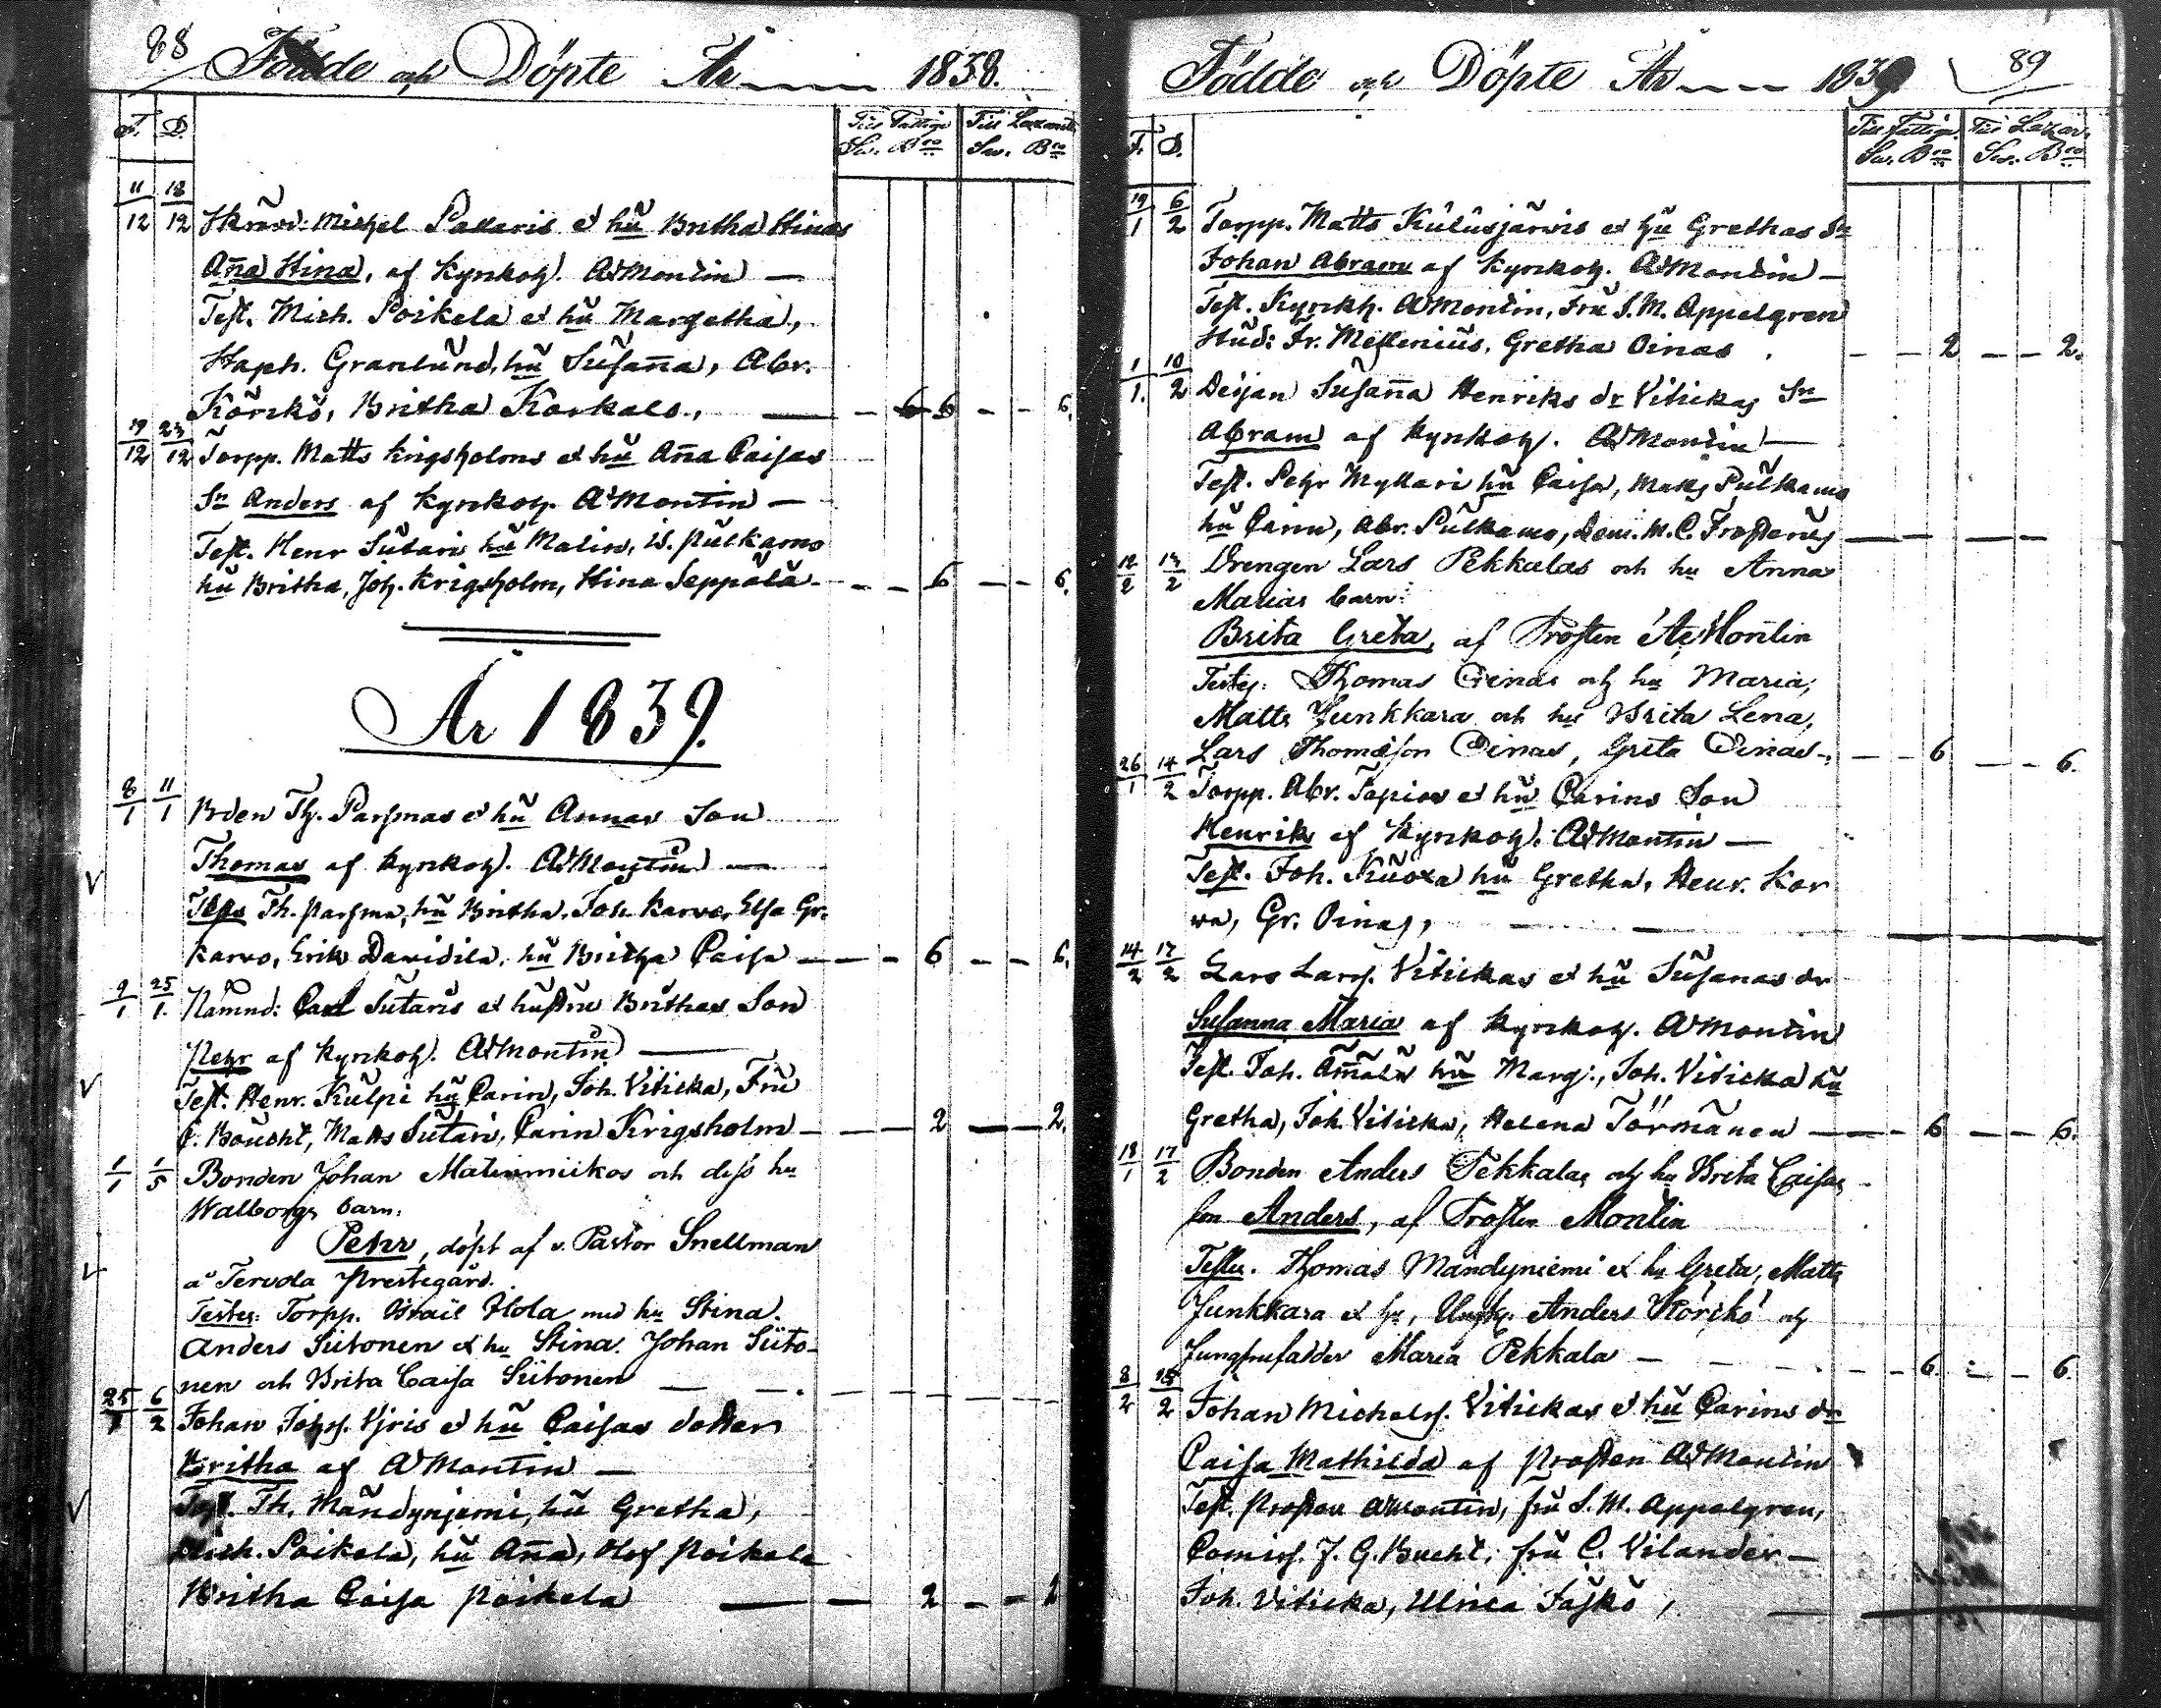 88
Födde och Döpte År 1838.
F. D. Till Fattiga Sw. Bco Till Lazarett. Sw. Bco
11/12 18/12 Michel Pallaris et hū Britha Stinas
Aña Stina, af Kyrkoh. AdMontin —
Test. Mich. Poikela et hū Margetha,
Staph. Granlund, hū Susaña, Abr.
Körckö, Britha Korkalo, — — 6 — — 6.
19/12 23/12 Torpp. Matts Krigsholms et hū Aña Caisas
Sn Anders af Kyrkoh. AdMontin —
Test. Henr Sutari hū Malin, Is. Pulkamo
hū Britha, Joh. Krigsholm, Stina Seppälä — — 6 — — 6.
År 1839.
8/1 11/1 Bden Th. Parpmas et hū Annas Son
Thomas af Kyrkoh. AdMontin —
Test Th. Parpma, hū Britha, Joh. Karvo, Elsa Gr.
Karvo, Erik Davidila, hū Britha Caisa — — 6 — — 6.
9/1 25/1. Nämnd: Carl Sutaris et hustru Brithas Son
Pehr af Kyrkoh. AdMontin —
Test. Henr. Kulpi hū Carin, Joh. Viticka, Fru
C. Boucht, Matts Sutari, Carin Krigsholm — — 2 — 2.
1/1 1/5 Bonden Johan Matinmiikos och dess hu
Walborgs barn:
Pehr, döpt af v. Pastor Snellman
a° Tervola Prestegård.
Testes: Torpp. Israil Hola med hu Stina.
Anders Siitonen et hu Stina. Johan Siito-
nen och Brita Caisa Siitonen — — —
25/1 6/2 Johan Johss. Vjris et hū Caisas dotter
Britha af AdMontin —
Test. Th. Mändynjemi, hū Gretha,
Mich. Poikela, hū Aña, Olof Poikela
Britha Caisa Poikela — — 2 — — 2
89
Födde och Döpte År 1839
F. D. Till Fattiga. Sw. Bco Till Lazar. Sw. Bco
19/1 6/2 Torpp. Matts Kulusjärvis et hū Grethas Sn
Johan Abram af Kyrkoh. AdMontin —
Test. Kyrkh. AdMontin, Fru S. M. Appelgren
Stud: Fr. Mellenius, Gretha Oinas. — — 2 — — 2.
1/1. 10/2 Deijan Susaña Henriks dr Vitickas Sn
Abram af Kyrkoh. AdMontin —
Test. Pehr Myllari hū Caisa, Matts Pulkamo
hū Carin, Abr. Pulkamo, Dem. M. C. Frosterus — — —
12/2 14/2 Drengen Lars Pekkalas och hu Anna
Marias barn:
Brita Greta, af Prosten AdMontin
Testes: Thomas Oinas och hu Maria,
Matts Junkkara och hu Brita Lena,
Lars Thomasson Oinas, Greta Oinas — — 6 — — 6.
26/1 14/2 Torpp. Abr. Tapios et hū Carins Son
Henrik af Kyrkoh. AdMontin —
Test. Joh. Kuoxa hū Gretha, Henr. Kor
va, Gr. Oinas, — —
14/2 17/2 Lars Larss. Vitickas et hū Susanas dr
Susanna Maria af Kyrkoh. AdMontin
Test. Joh. Ammala hū Marg:, Joh. Viticka hū
Gretha, Joh. Viticka, Helena Törmänen — — 6 — — 6.
18/1 17/2 Bonden Anders Pekkalas och hu Brita Caisas
son Anders, af Prosten Montin
Testes. Thomas Mändyniemi et hu Greta, Matts
Junkkara et hu, Ungk. Anders Körckö och
Jungfrufadder Maria Pekkala — — 6. — — 6.
8/2 Johan Michelss. Vitickas et hū Carins dr
Caisa Mathilda af Prosten AdMontin
Test. Prosten AdMontin, fru S. M. Appelgren,
Comiss. J. G. Bucht, fru C. Vilander —
Joh. Viticka, Ulrica